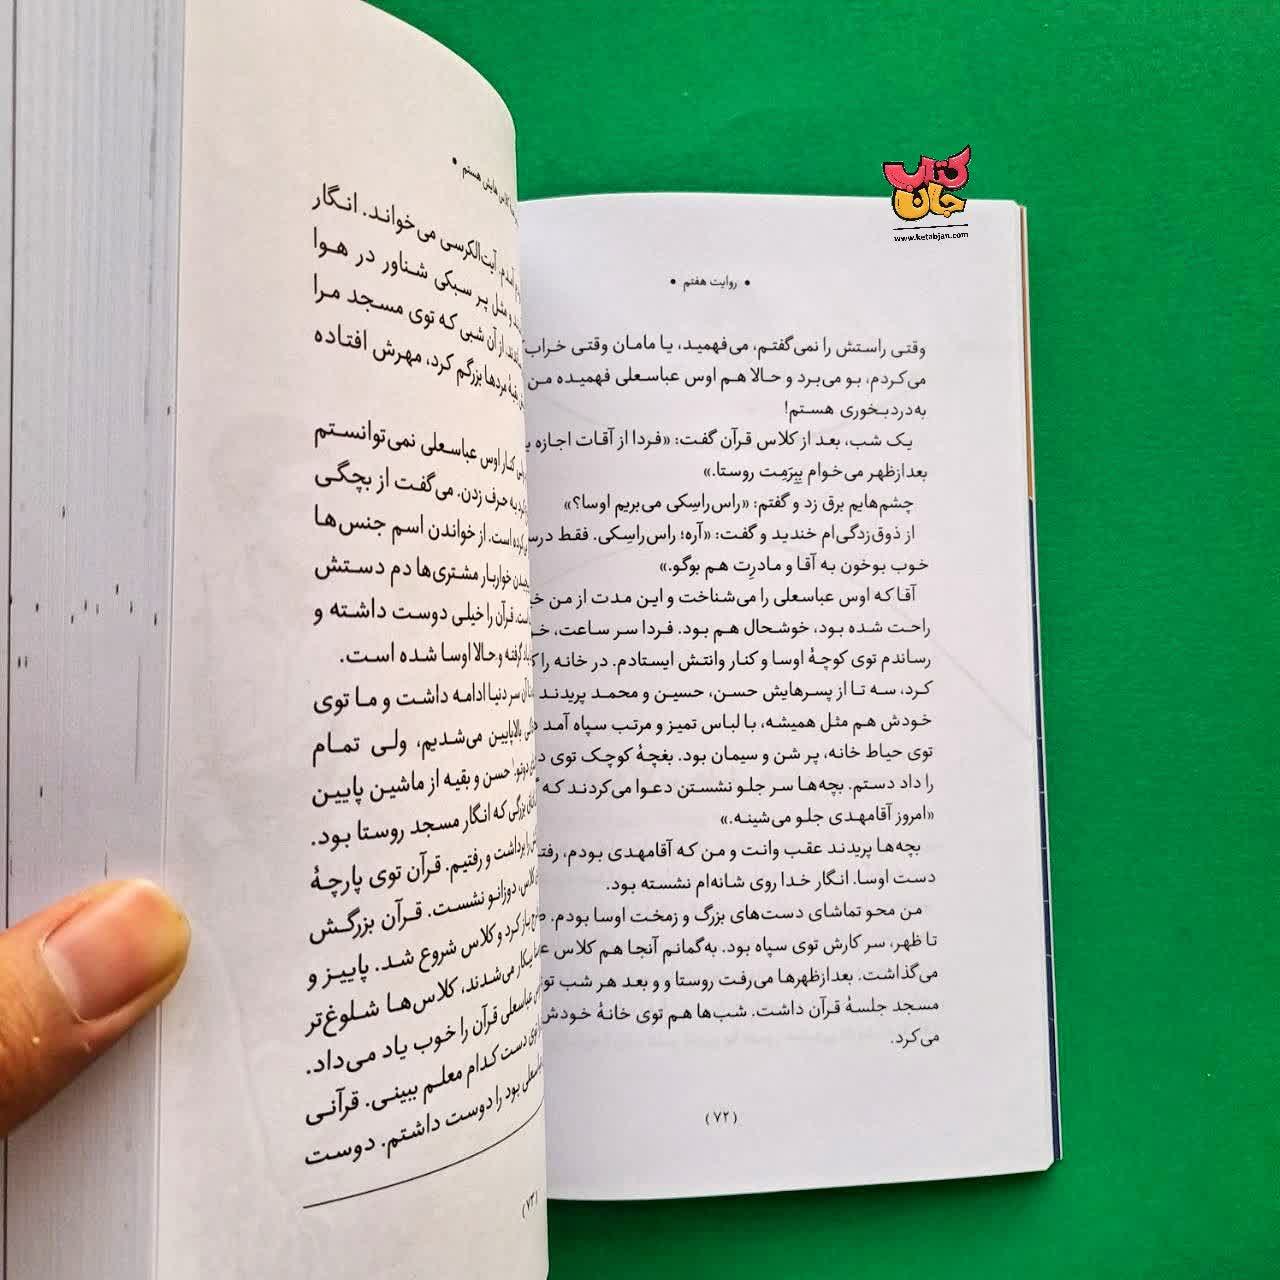 کتاب
جان
www.ketabjan.com
• روایت هفتم •
وقتی راستش را نمی‌گفتم، می‌فهمید، یا مامان وقتی خراب
می‌کردم، بو می‌برد و حالا هم اوس عباسعلی فهمیده من
به‌دردبخوری هستم!
یک شب، بعد از کلاس قرآن گفت: «فردا از آقات اجازه
بعدازظهر می‌خوام بِبِرَمِت روستا.»
چشم‌هایم برق زد و گفتم: «راس‌راسِکی می‌بریم اوسا؟»
از ذوق‌زدگی‌ام خندید و گفت: «آره؛ راس‌راسِکی. فقط
خوب بوخون به آقا و مادرِت هم بوگو.»
آقا که اوس عباسعلی را می‌شناخت و این مدت از من
راحت شده بود، خوشحال هم بود. فردا سر ساعت،
رساندم توی کوچهٔ اوسا و کنار وانتش ایستادم. در خانه را
کرد، سه تا از پسرهایش حسن، حسین و محمد پریدند
خودش هم مثل همیشه، با لباس تمیز و مرتب سپاه آمد
توی حیاط خانه، پر شن و سیمان بود. بغچهٔ کوچک توی
را داد دستم. بچه‌ها سر جلو نشستن دعوا می‌کردند که
«امروز آقامهدی جلو می‌شینه.»
بچه‌ها پریدند عقب وانت و من که آقامهدی بودم،
دست اوسا. انگار خدا روی شانه‌ام نشسته بود.
من محو تماشای دست‌های بزرگ و زمخت اوسا بودم.
تا ظهر، سر کارش توی سپاه بود. به‌گمانم آنجا هم کلاس
می‌گذاشت. بعدازظهرها می‌رفت روستا و و بعد هر شب
مسجد جلسهٔ قرآن داشت. شب‌ها هم توی خانهٔ خودش
می‌کرد.
(۷۲)
هایش هستم •
آیت‌الکرسی می‌خواند. انگار
و مثل پر سبکی شناور در هوا
از آن شبی که توی مسجد مرا
بقیهٔ مردها بزرگم کرد، مهرش افتاده
کنار اوس عباسعلی نمی‌توانستم
به حرف زدن. می‌گفت از بچگی
کرده است. از خواندن اسم جنس‌ها
خواربار مشتری‌ها دم دستش
قرآن را خیلی دوست داشته و
گرفته و حالا اوسا شده است.
آن سر دنیا ادامه داشت و ما توی
بالاپایین می‌شدیم، ولی تمام
حسن و بقیه از ماشین پایین
بزرگی که انگار مسجد روستا بود.
را برداشت و رفتیم. قرآن توی پارچهٔ
کلاس، دوزانو نشست. قرآن بزرگش
باز کرد و کلاس شروع شد. پاییز و
بیکار می‌شدند، کلاس‌ها شلوغ‌تر
عباسعلی قرآن را خوب یاد می‌داد.
توی دست کدام معلم ببینی. قرآنی
بود را دوست داشتم. دوست
(۷۳)